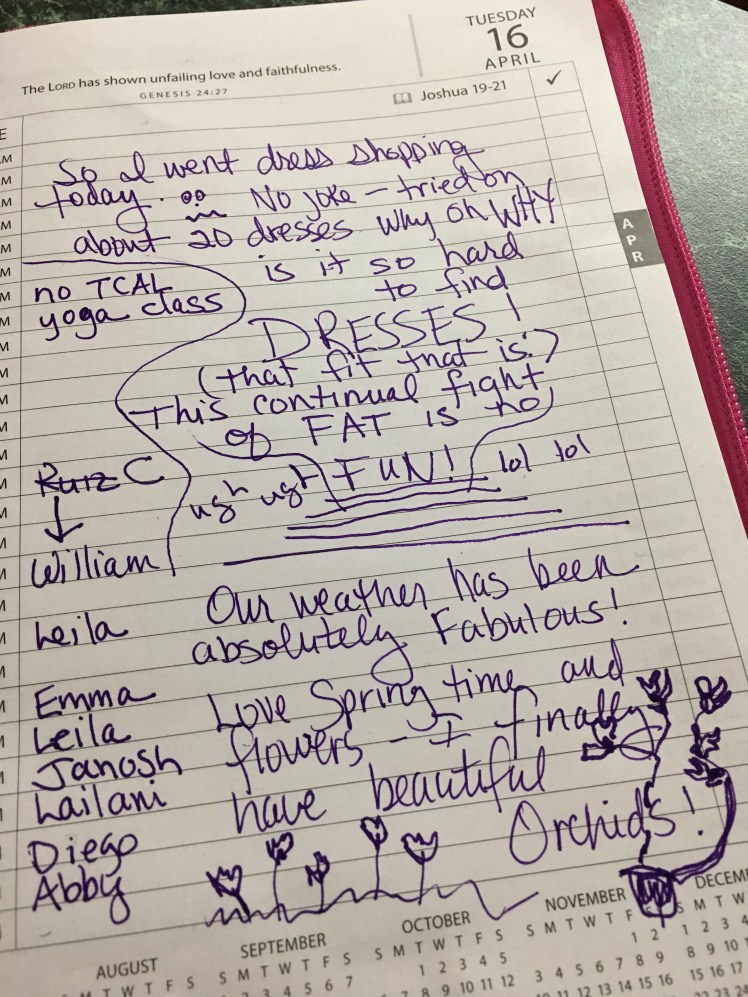 TUESDAY
16
APRIL
The LORD has shown unfailing love and faithfulness.
GENESIS 24:27
Joshua 19-21
✓
E
M
M
M
M
M
M
M
M
M
A
P
R
So I went dress shopping
today. No joke - tried on
about 20 dresses Why oh WHY
is it so hard
to find
DRESSES!
(that fit that is.)
This continual fight
of FAT is no
ugh ugh FUN! lol lol
no TCAL
yoga class
Kurz C
William
Leila
Emma
Leila
Janosh
Lailani
Diego
Abby
Our weather has been
absolutely Fabulous!
Love Spring time and
flowers - I finally
have beautiful
Orchids!
AUGUST
M T W T F S
SEPTEMBER
S M T W T F S
1 2 3 4 5 6 7
OCTOBER
S M T W T F S
1 2 3 4 5
7 8 9 10 11 12
NOVEMBER
S M T W T F S
1 2
3 4 5 6 7 8 9
11 12 13 14 15 16
DECEM
S M T W
1 2 3 4
8 9 10
15 16 17
22 23 24